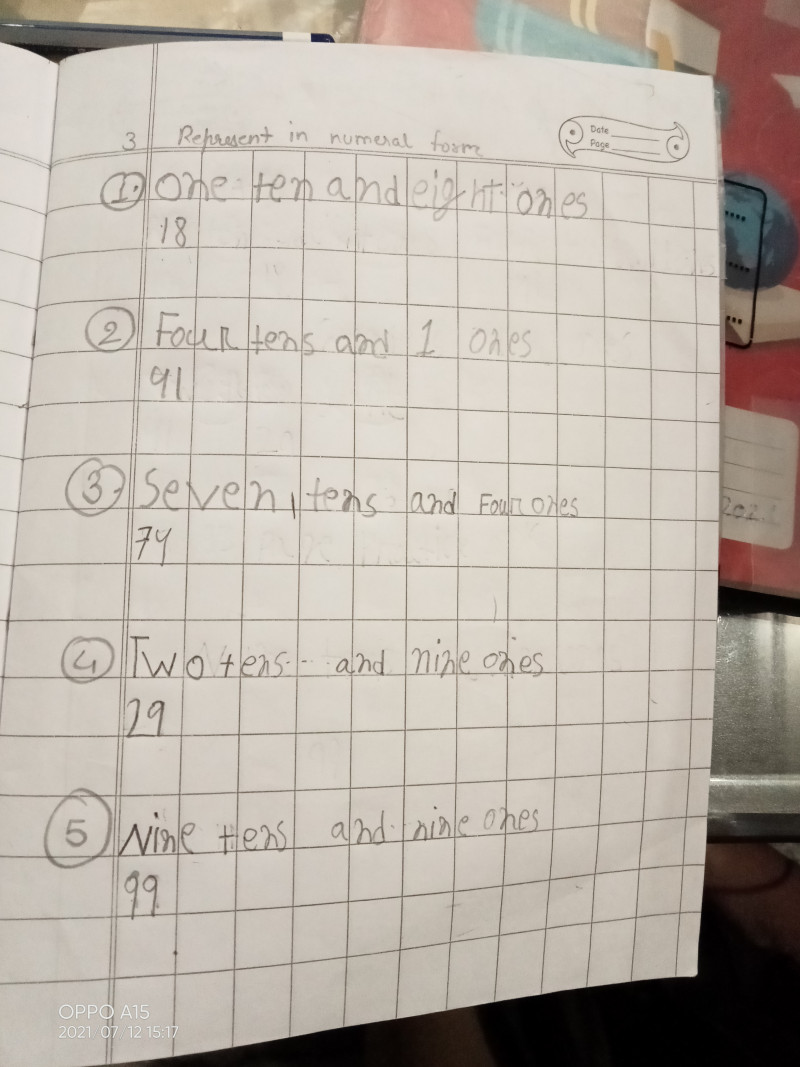 Date
Page
3 Represent in numeral form
1. One ten and eight ones
18
2 Four tens and 1 ones
41
3 Seven, tens and Four ones
74
4 Two tens - and nine ones
29
5 Nine tens and nine ones
99
202
OPPO A15
2021 07 12 15:17